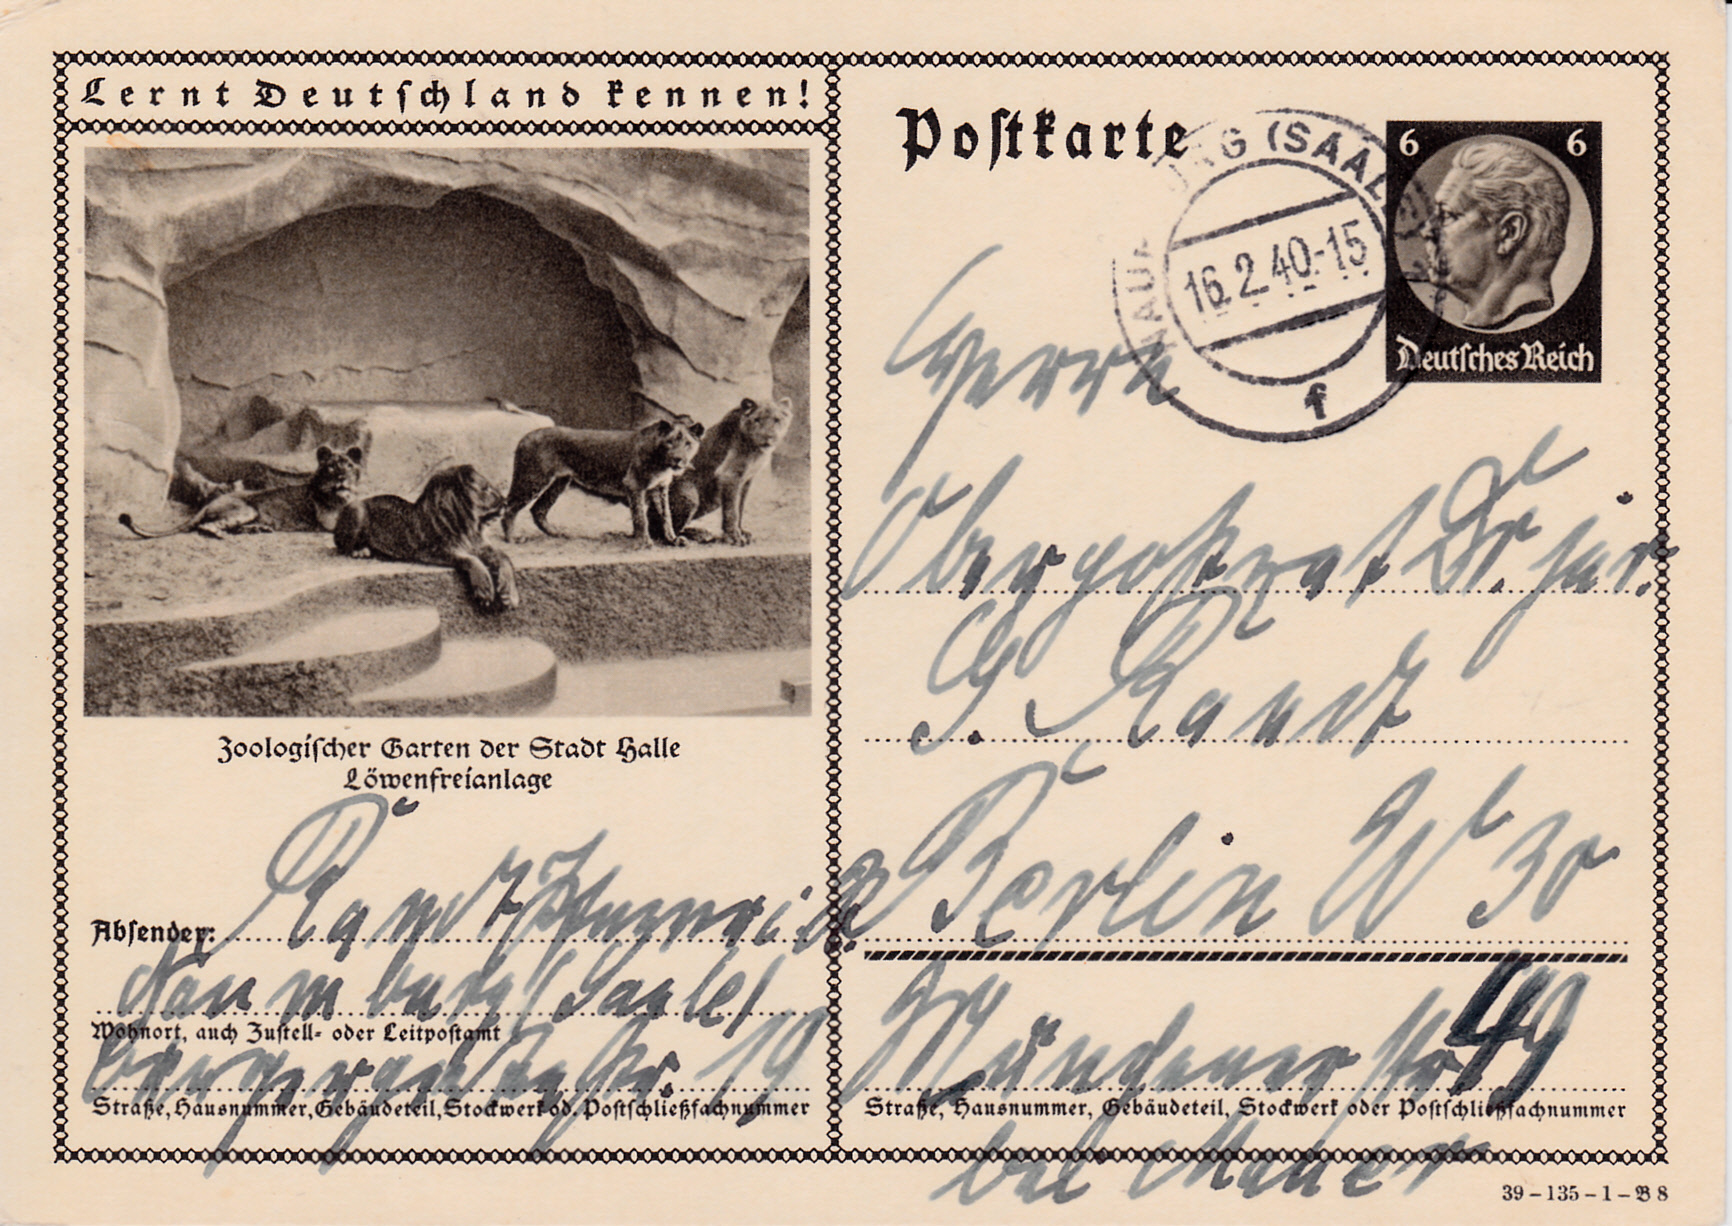 Lernt Deutschland kennen!
Zoologischer Garten der Stadt Halle
Löwenfreianlage
Absender:
Naumburg (Saale)
Wohnort, auch Zustell- oder Leitpostamt
19
Straße, Hausnummer, Gebäudeteil, Stockwerk od. Postschließfachnummer
Postkarte
NAUMBURG (SAALE)
16.2.40.-15
f
6 6
Deutsches Reich
Herrn
Dr. jur.
G. Kandt
Berlin W 30
Münchener Str. 49
Straße, Hausnummer, Gebäudeteil, Stockwerk oder Postschließfachnummer
bei
39-135-1-B 8